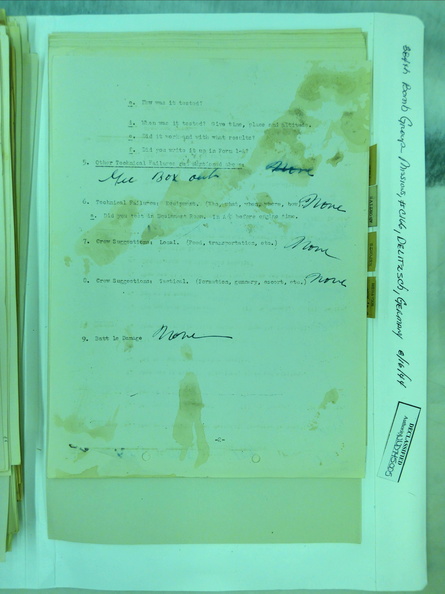 How was it tested?
When was it tested? Give time, place and altitude.
Did it work and with what results?
Did you write it up in Form 1-A?
5. Other Technical Failures not mentioned above. None
Box out
6. Technical Failures: Equipment. (What, when, where, how) None
a. Did you this in Equipment Room, in A/C before engine time.
7. Crew Suggestions: Local. (Food, transportation, etc.) None
8. Crew Suggestions: Tactical. (Formation, gunnery, escort, etc.) None
9. Battle Damage None
-2-
384th Bomb Group Missions, #C166, Delitzsch, Germany 8/16/44
DECLASSIFIED